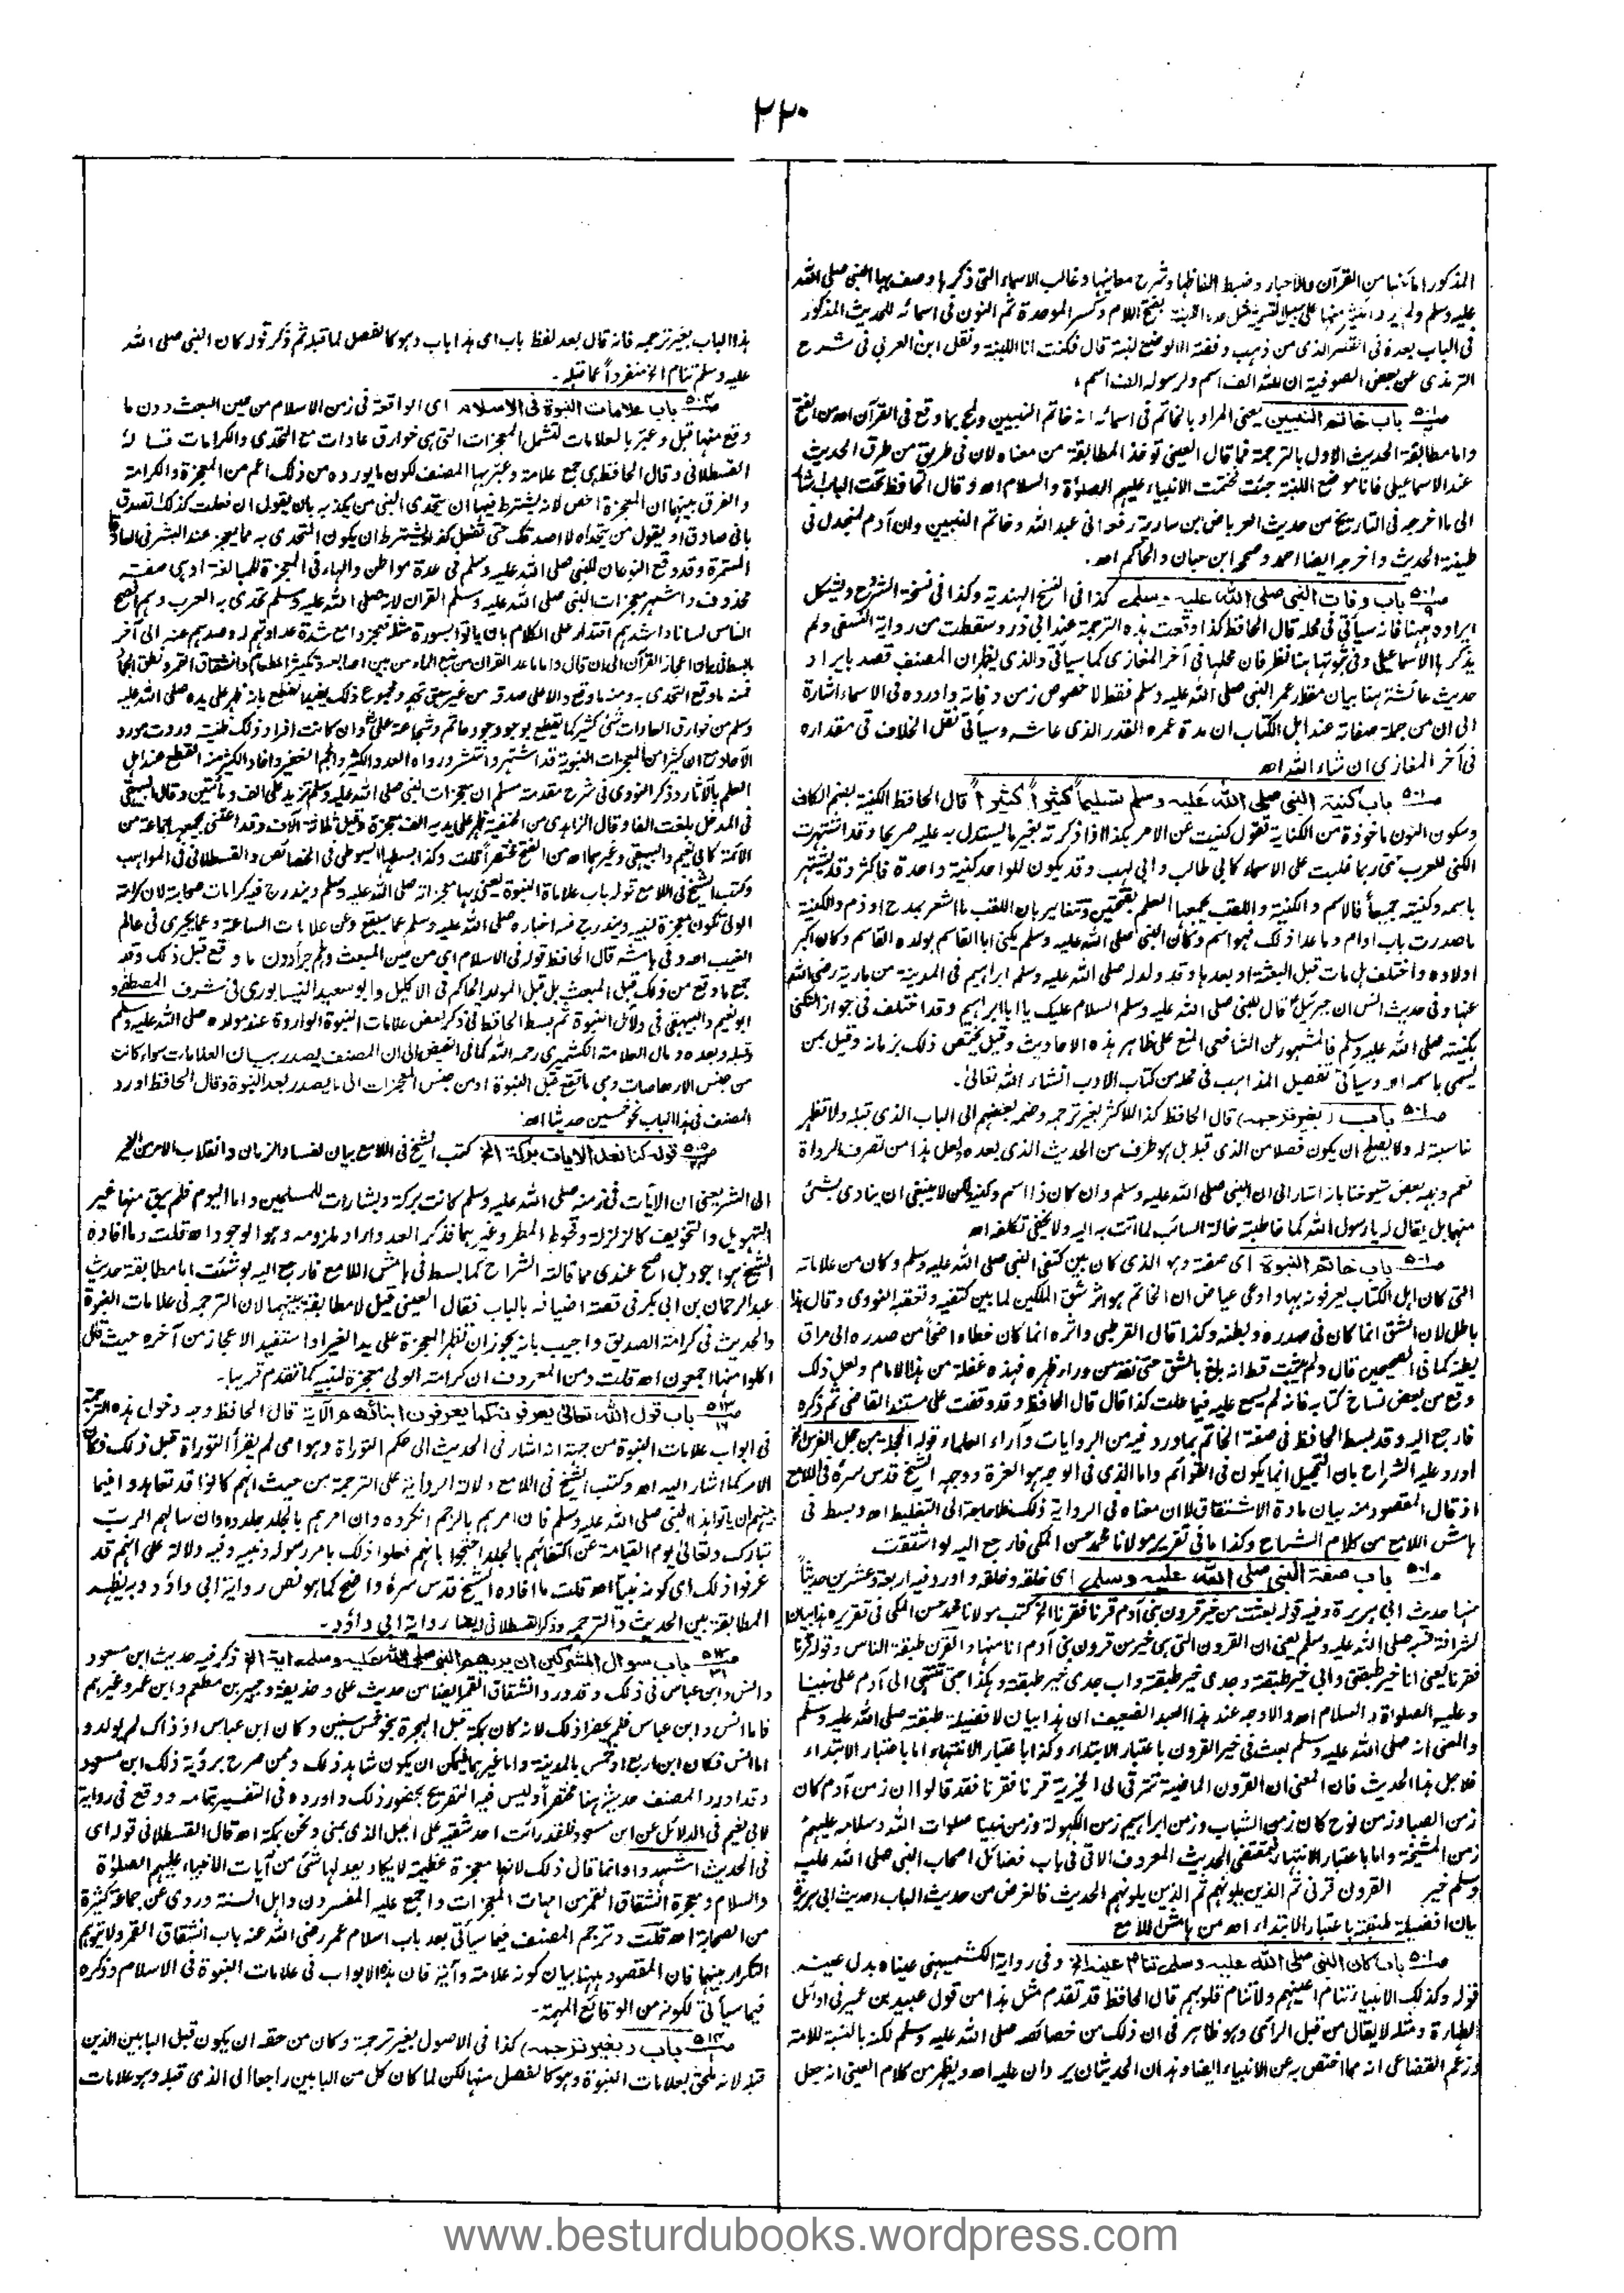 ٢٢٠
المذكور اما كنها من القرآن والاخبار وضبط الفاظها وشرح معانيها وغالب الاسماء التى ذكرها وصف بها النبى صلى الله
عليه وسلم بفتح اللام وكسر الموحدة ثم النون فى اسمائه للحديث المذكور
فى الباب بعده فى القصر الذى من ذهب وفضة الا موضع لبنة قال فكنت انا اللبنة ونقل ابن العربي فى شرح
الترمذى عن بعض الصوفية ان لله الف اسم ولرسوله الف اسم ،
باب خاتم النبيين يعنى المراد بالخاتم فى اسمائه انه خاتم النبيين ولمح بما وقع فى القرآن اھ من الفتح
واما مطابقة الحديث الاول بالترجمة فما قال العينى توخذ المطابقة من معناه لان فى طريق من طرق الحديث
عند الاسماعيلى فانا موضع اللبنة جئت فختمت الانبياء عليهم الصلوة والسلام اھ وقال الحافظ تحت الباب اشار
الى ما اخرجه فى التاريخ من حديث العرباض ابن سارية رفعه انى عبد الله وخاتم النبيين وان آدم لمنجدل فى
طينته الحديث واخرجه ايضا احمد وصححه ابن حبان والحاكم اھ .
باب وفات النبى صلى الله عليه وسلم كذا فى النسخ الهندية وكذا فى نسخة الشروح ويشكل
ايراده ههنا فانه سيأتى فى محله قال الحافظ كذا وقعت هذه الترجمة عند ابى ذر وسقطت من رواية النسفى ولم
يذكرها الاسماعيلى وفى ثبوتها هنا نظر فان محلها فى آخر المغازى كما سيأتى والذى يظهر ان المصنف قصد بايراد
حديث عائشة هنا بيان مقدار عمر النبى صلى الله عليه وسلم فقط لا خصوص زمن وفاته واورده فى الاسماء اشارة
الى ان من جملة صفاته عند اهل الكتاب ان مدة عمره القدر الذى عاشه وسيأتى نقل الخلاف فى مقداره
فى آخر المغازى ان شاء الله اھ
باب كنية النبى صلى الله عليه وسلم تسليماً كثيراً كثيراً قال الحافظ الكنية بضم الكاف
وسكون النون ماخوذة من الكناية تقول كنيت عن الامر بكذا اذا ذكرته بغير ما يستدل به عليه صريحا وقد اشتهرت
الكنى للعرب حتى ربما غلبت على الاسماء كابى طالب وابى لهب وقد يكون للواحد كنية واحدة فاكثر وقد يشتهر
باسمه وكنيته جميعاً فالاسم والكنية واللقب يجمعها العلم بفتحتين وتتغاير بان اللقب ما اشعر بمدح او ذم والكنية
ما صدرت باب او ام وما عدا ذلك فهو اسم وكان النبى صلى الله عليه وسلم يكنى ابا القاسم بولده القاسم وكان اكبر
اولاده واختلف هل مات قبل البعثة او بعدها وقد ولد له صلى الله عليه وسلم ابراهيم فى المدينة من مارية رضى الله
عنها وفى حديث انس ان جبرئيل قال للنبى صلى الله عليه وسلم السلام عليك يا ابا ابراهيم وقد اختلف فى جواز التكنى
بكنيته صلى الله عليه وسلم فالمشهور عن الشافعى المنع على ظاهر هذه الاحاديث وقيل يختص ذلك بزمانه وقيل بمن
يسمى باسمه اھ وسيأتى تفصيل المذاهب فى محله من كتاب الادب انشاء الله تعالى .
باب (بغير ترجمه) قال الحافظ كذا للاكثر بغير ترجمه وضمه بعضهم الى الباب الذى قبله ولا تظهر
مناسبته له ولا يصلح ان يكون فصلا من الذى قبله بل هو طرف من الحديث الذى بعده ولعل هذا من تصرف الرواة
نعم وجهه بعض شيوخنا بانه اشار الى ان النبى صلى الله عليه وسلم وان كان ذا اسم وكنية لكن لا ينبغى ان ينادى بشئ
منها بل يقال له يا رسول الله كما خاطبته خالة السائب لما اتت به اليه ولا يخفى تكلفه اھ
باب خاتم النبوة اى صفته وهو الذى كان بين كتفى النبى صلى الله عليه وسلم وكان من علاماته
التى كان اهل الكتاب يعرفونه بها وادعى عياض ان الخاتم هو اثر شق الملكين لما بين كتفيه وتعقبه النووى وقال هذا
باطل لان الشق انما كان فى صدره وبطنه وكذا قال القرطبى واثره انما كان خطا واضحاً من صدره الى مراق
بطنه كما فى الصحيحين قال ولم يثبت قط انه بلغ بالشق حتى نفذ من وراء ظهره فهذه غفلة من هذا الامام ولعل ذلك
وقع من بعض نساخ كتابه فانه لم يسمع عليه فيما علمت كذا قال قال الحافظ وقد وقفت على مستند القاضى ثم ذكره
فارجع اليه وقد بسط الحافظ فى صفة الخاتم بما ورد فيه من الروايات وآراء العلماء قوله الحجلة من حجل الفرس الخ
اورد عليه الشراح بان التحجيل انما يكون فى القوائم واما الذى فى الوجه هو الغرة ووجهه الشيخ قدس سره فى اللامع
اذ قال المقصود منه بيان مادة الاشتقاق لا ان معناه فى الرواية ذلك فلا حاجة الى التغليط اھ وبسط فى
هامش اللامع من كلام الشراح وكذا ما فى تقرير مولانا محمد حسن المكى فارجع اليه لو اشتقت
باب صفة النبى صلى الله عليه وسلم اى خلقه وخلقه واورد فيه اربعة وعشرين حديثاً
منها حديث ابى هريرة وفيه قوله بعثت من خير قرون بنى آدم قرنا فقرنا الخ كتب مولانا محمد حسن المكى فى تقريره هذا بيان
لشرافة نسبه صلى الله عليه وسلم يعنى ان القرون التى هى خير من قرون بنى آدم انا منها والقرن طبقة الناس وقوله قرنا
فقرنا يعنى انا خير طبقتى وابى خير طبقته وجدى خير طبقته واب جدى خير طبقته وهكذا حتى تنتهى الى آدم على نبينا
وعليه الصلوة والسلام اھ والاوجه عند هذا العبد الضعيف ان هذا بيان لافضيلة طبقته صلى الله عليه وسلم
والمعنى انه صلى الله عليه وسلم بعث فى خير القرون باعتبار الابتداء وكذا باعتبار الانتهاء اما باعتبار الابتداء
فلاجل هذا الحديث فان المعنى ان القرون الماضية تترقى الى الخيرية قرنا فقرنا فقد قالوا ان زمن آدم كان
زمن الصبا وزمن نوح كان زمن الشباب وزمن ابراهيم زمن الكهولة وزمن نبينا صلوات الله وسلامه عليهم
زمن المشيخة واما باعتبار الانتهاء فبمقتضى الحديث المعروف الاتى فى باب فضائل اصحاب النبى صلى الله عليه
وسلم خير القرون قرنى ثم الذين يلونهم ثم الذين يلونهم الحديث فالغرض من حديث الباب احديث ابى هريرة
بيان افضيلة طبقته باعتبار الابتداء اھ من هامش اللامع
باب كان النبى صلى الله عليه وسلم تنام عينه الخ وفى رواية الكشميهنى عيناه بدل عينه
قوله وكذلك الانبياء تنام اعينهم ولا تنام قلوبهم قال الحافظ قد تقدم مثل هذا من قول عبيد بن عمير فى اوائل
الطهارة ومثله لا يقال من قبل الرأى وهو ظاهر فى ان ذلك من خصائصه صلى الله عليه وسلم لكنه بالنسبة للامة
وزعم القضاعى انه مما اختص به عن الانبياء ايضا وهذان الحديثان يردان عليه اھ ويظهر من كلام العينى انه جعل
هذا الباب بغير ترجمه فانه قال بعد لفظ باب اى هذا باب وهو كالفصل لما قبله ثم ذكر قوله كان النبى صلى الله
عليه وسلم تنام الخ منفرداً عما قبله .
باب علامات النبوة فى الاسلام اى الواقعة فى زمن الاسلام من حين المبعث دون ما
وقع منها قبل وعبر بالعلامات لتشمل المعجزات التى هى خوارق عادات مع التحدى والكرامات قاله
القسطلانى وقال الحافظ هى جمع علامة وعبر بها المصنف لكون ما يورده من ذلك اعم من المعجزة والكرامة
والفرق بينهما ان المعجزة اخص لانه يشترط فيها ان يتحدى النبى من يكذبه بان يقول ان فعلت كذلك اتصدق
بانى صادق او يقول من يتحداه لا اصدقك حتى تفعل كذا ويشترط ان يكون المتحدى به مما يعجز عنه البشر فى العادة
المستمرة وقد وقع النوعان للنبى صلى الله عليه وسلم فى عدة مواطن والهاء فى المعجزة للمبالغة او هى صفة
محذوف واشهر معجزات النبى صلى الله عليه وسلم القران لانه صلى الله عليه وسلم تحدى به العرب وهم افصح
الناس لسانا واشدهم اقتدارا على الكلام بان ياتوا بسورة مثله فعجزوا مع شدة عداوتهم له وصدهم عنه الى آخر
ما بسط فى بيان اعجاز القرآن الى ان قال واما ما عدا القران من نبع الماء من بين اصابعه وتكثير الطعام وانشقاق القمر ونطق الجماد
فمنه ما وقع التحدى به ومنه ما وقع دالا على صدقه من غير سبق تحد ومجموع ذلك يفيد القطع بانه ظهر على يده صلى الله عليه
وسلم من خوارق العادات شئ كثير كما يقطع بوجود جود حاتم وشجاعة على وان كانت افراد ذلك ظنية وردت مورد
الآحاد مع ان كثيرا من المعجزات النبوية قد اشتهر وانتشر ورواه العدد الكثير والجم الغفير وافاد الكثير منه القطع عند اهل
العلم بالآثار وذكر النووى فى شرح مقدمة مسلم ان معجزات النبى صلى الله عليه وسلم تزيد على الف ومأتين وقال البيهقى
فى المدخل بلغت الفا وقال الزاهدى من الحنفية ظهر على يديه الف معجزة وقيل ثلاثة آلاف وقد اعتنى بجمعها جماعة من
الائمة كابى نعيم والبيهقى وغيرهما اھ من الفتح مختصراً قلت وكذا بسطها السيوطى فى الخصائص والقسطلانى فى المواهب
وكتب الشيخ فى اللامع قوله باب علامات النبوة يعنى بها معجزاته صلى الله عليه وسلم ويندرج فيه كرامات صحابته لان كرامة
الولى تكون معجزة لنبيه ويندرج فيه اخباره صلى الله عليه وسلم عما سيقع وعن علامات الساعة وعما يجرى فى عالم
الغيب اھ وفى هامشه قال الحافظ قوله فى الاسلام اى من حين المبعث وهلم جراً دون ما وقع قبل ذلك وقد
جمع ما وقع من ذلك قبل المبعث بل قبل المولد الحاكم فى الاكليل وابو سعيد النيسابورى فى شرف المصطفى و
ابو نعيم والبيهقى فى دلائل النبوة ثم بسط الحافظ فى ذكر بعض علامات النبوة الواردة عند مولده صلى الله عليه وسلم
وقبله وبعده ومال العلامة الكشميرى رحمه الله كما فى الفيض الى ان المصنف بصدد بيان العلامات سواء كانت
من جنس الارهاصات وهى ما تقع قبل النبوة او من جنس المعجزات التى ما يصدر بعد النبوة وقال الحافظ اورد
المصنف فى هذا الباب نحو خمسين حديثا اھ .
قوله كنا نعد الآيات بركة الخ كتب الشيخ فى اللامع بيان لفساد الزمان وانقلاب الامر من الخير
الى الشر يعنى ان الآيات فى زمنه صلى الله عليه وسلم كانت بركة وبشارات للمسلمين واما اليوم فلم يبق منها غير
التهويل والتخويف كالزلزلة وقحوط المطر وغيرهما فذكر العدد واراد ملزومه وهو الوجود اھ قلت وما افاده
الشيخ هو اجود بل اصح عندى مما قالته الشراح كما بسط فى هامش اللامع فارجع اليه لو شئت اما مطابقة حديث
عبد الرحمان بن ابى بكر فى قصة اضيافه بالباب فقال العينى قيل لا مطابقة بينهما لان الترجمة فى علامات النبوة
والحديث فى كرامة الصديق واجيب بانه يجوز ان تظهر المعجزة على يد الغير او استفيد الاعجاز من آخره حيث قال
اكلوا منها اجمعون اھ قلت ومن المعروف ان كرامة الولى معجزة لنبيه كما تقدم قريبا .
باب قول الله تعالى يعرفونه كما يعرفون ابنائهم الآية قال الحافظ وجه دخول هذه الترجمة
فى ابواب علامات النبوة من جهة انه اشار فى الحديث الى حكم التوراة وهو امى لم يقرأ التوراة قبل ذلك فكان
الامر كما اشار اليه اھ وكتب الشيخ فى اللامع دلالة الرواية على الترجمة من حيث انهم كانوا قد تعاهدوا فيما
بينهم ان ياتوا هذا النبى صلى الله عليه وسلم فان امرهم بالرجم انكروه وان امرهم بالجلد جلدوه وان سالهم الرب
تبارك وتعالى يوم القيامة عن اكتفائهم بالجلد احتجوا بانهم فعلوا ذلك بامر رسوله ونبيه وفيه دلالة على انهم قد
عرفوا ذلك اى كونه نبياً اھ قلت ما افاده الشيخ قدس سره واضح كما هو نص رواية ابى داؤد وبه يظهر
المطابقة بين الحديث والترجمة وذكر القسطلانى ايضا رواية ابى داؤد .
باب سوال المشركين ان يريهم النبى صلى الله عليه وسلم اية الخ ذكر فيه حديث ابن مسعود
وانس وابن عباس فى ذلك وقد ورد انشقاق القمر ايضا من حديث على وحذيفة وجبير بن مطعم وابن عمر وغيرهم
فاما انس وابن عباس فلم يحضرا ذلك لانه كان بمكة قبل الهجرة بنحو خمس سنين وكان ابن عباس اذ ذاك لم يولد و
اما انس فكان ابن اربع او خمس بالمدينة واما غيرهما فيمكن ان يكون شاهد ذلك وممن صرح برؤية ذلك ابن مسعود
وقد اورد المصنف حديثه هنا مختصراً وليس فيه التصريح بحضور ذلك واورده فى التفسير بتمامه ووقع فى رواية
لابى نعيم فى الدلائل عن ابن مسعود فلقد رائت احد شقيه على الجبل الذى بمنى ونحن بمكة اھ قال القسطلانى قوله اى
فى الحديث اشهدوا وانما قال ذلك لانها معجزة عظيمة لا يكاد يعدلها شئ من آيات الانبياء عليهم الصلوة
والسلام ومعجزة انشقاق القمر من امهات المعجزات واجمع عليه المفسرون واهل السنة وروى عن جماعة كثيرة
من الصحابة اھ قلت وترجم المصنف فيما سيأتى بعد باب اسلام عمر رضى الله عنه باب انشقاق القمر ولا يتوهم
التكرار بينهما فان المقصود ههنا بيان كونه علامة وآية فان هذه الابواب فى علامات النبوة فى الاسلام وذكره
فيما سيأتى لكونه من الوقائع المهمة .
باب (بغير ترجمه) كذا فى الاصول بغير ترجمة وكان من حقه ان يكون قبل البابين الذين
قبله لانه ملحق بعلامات النبوة وهو كالفصل منها لكن لما كان كل من البابين راجعا الى الذى قبله وهو علامات
www.besturdubooks.wordpress.com